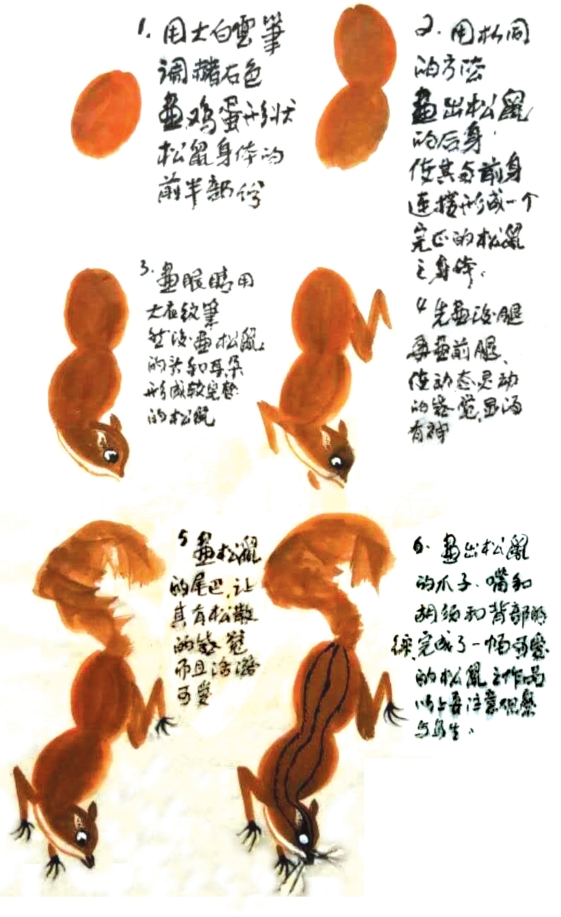 1. 用大白雲筆
调赭石色
畫鸡蛋形状
松鼠身体的
前半部份
2. 用相同
的方法
畫出松鼠
的后身.
使其与前身
连接形成一个
完正的松鼠
之身体.
3. 畫眼睛用
大衣纹筆
然後畫松鼠
的头和耳朵
形成较完整
的松鼠
4 先畫後腿
再畫前腿、
使动态灵动
的感觉,显得
有神
5 畫松鼠
的尾巴,让
其有松散
的感觉
而且活潑
可爱
6. 畫出松鼠
的爪子、嘴和
胡须和背部的
线,完成了一幅可爱
的松鼠之作品
以上要注意观察
与写生.